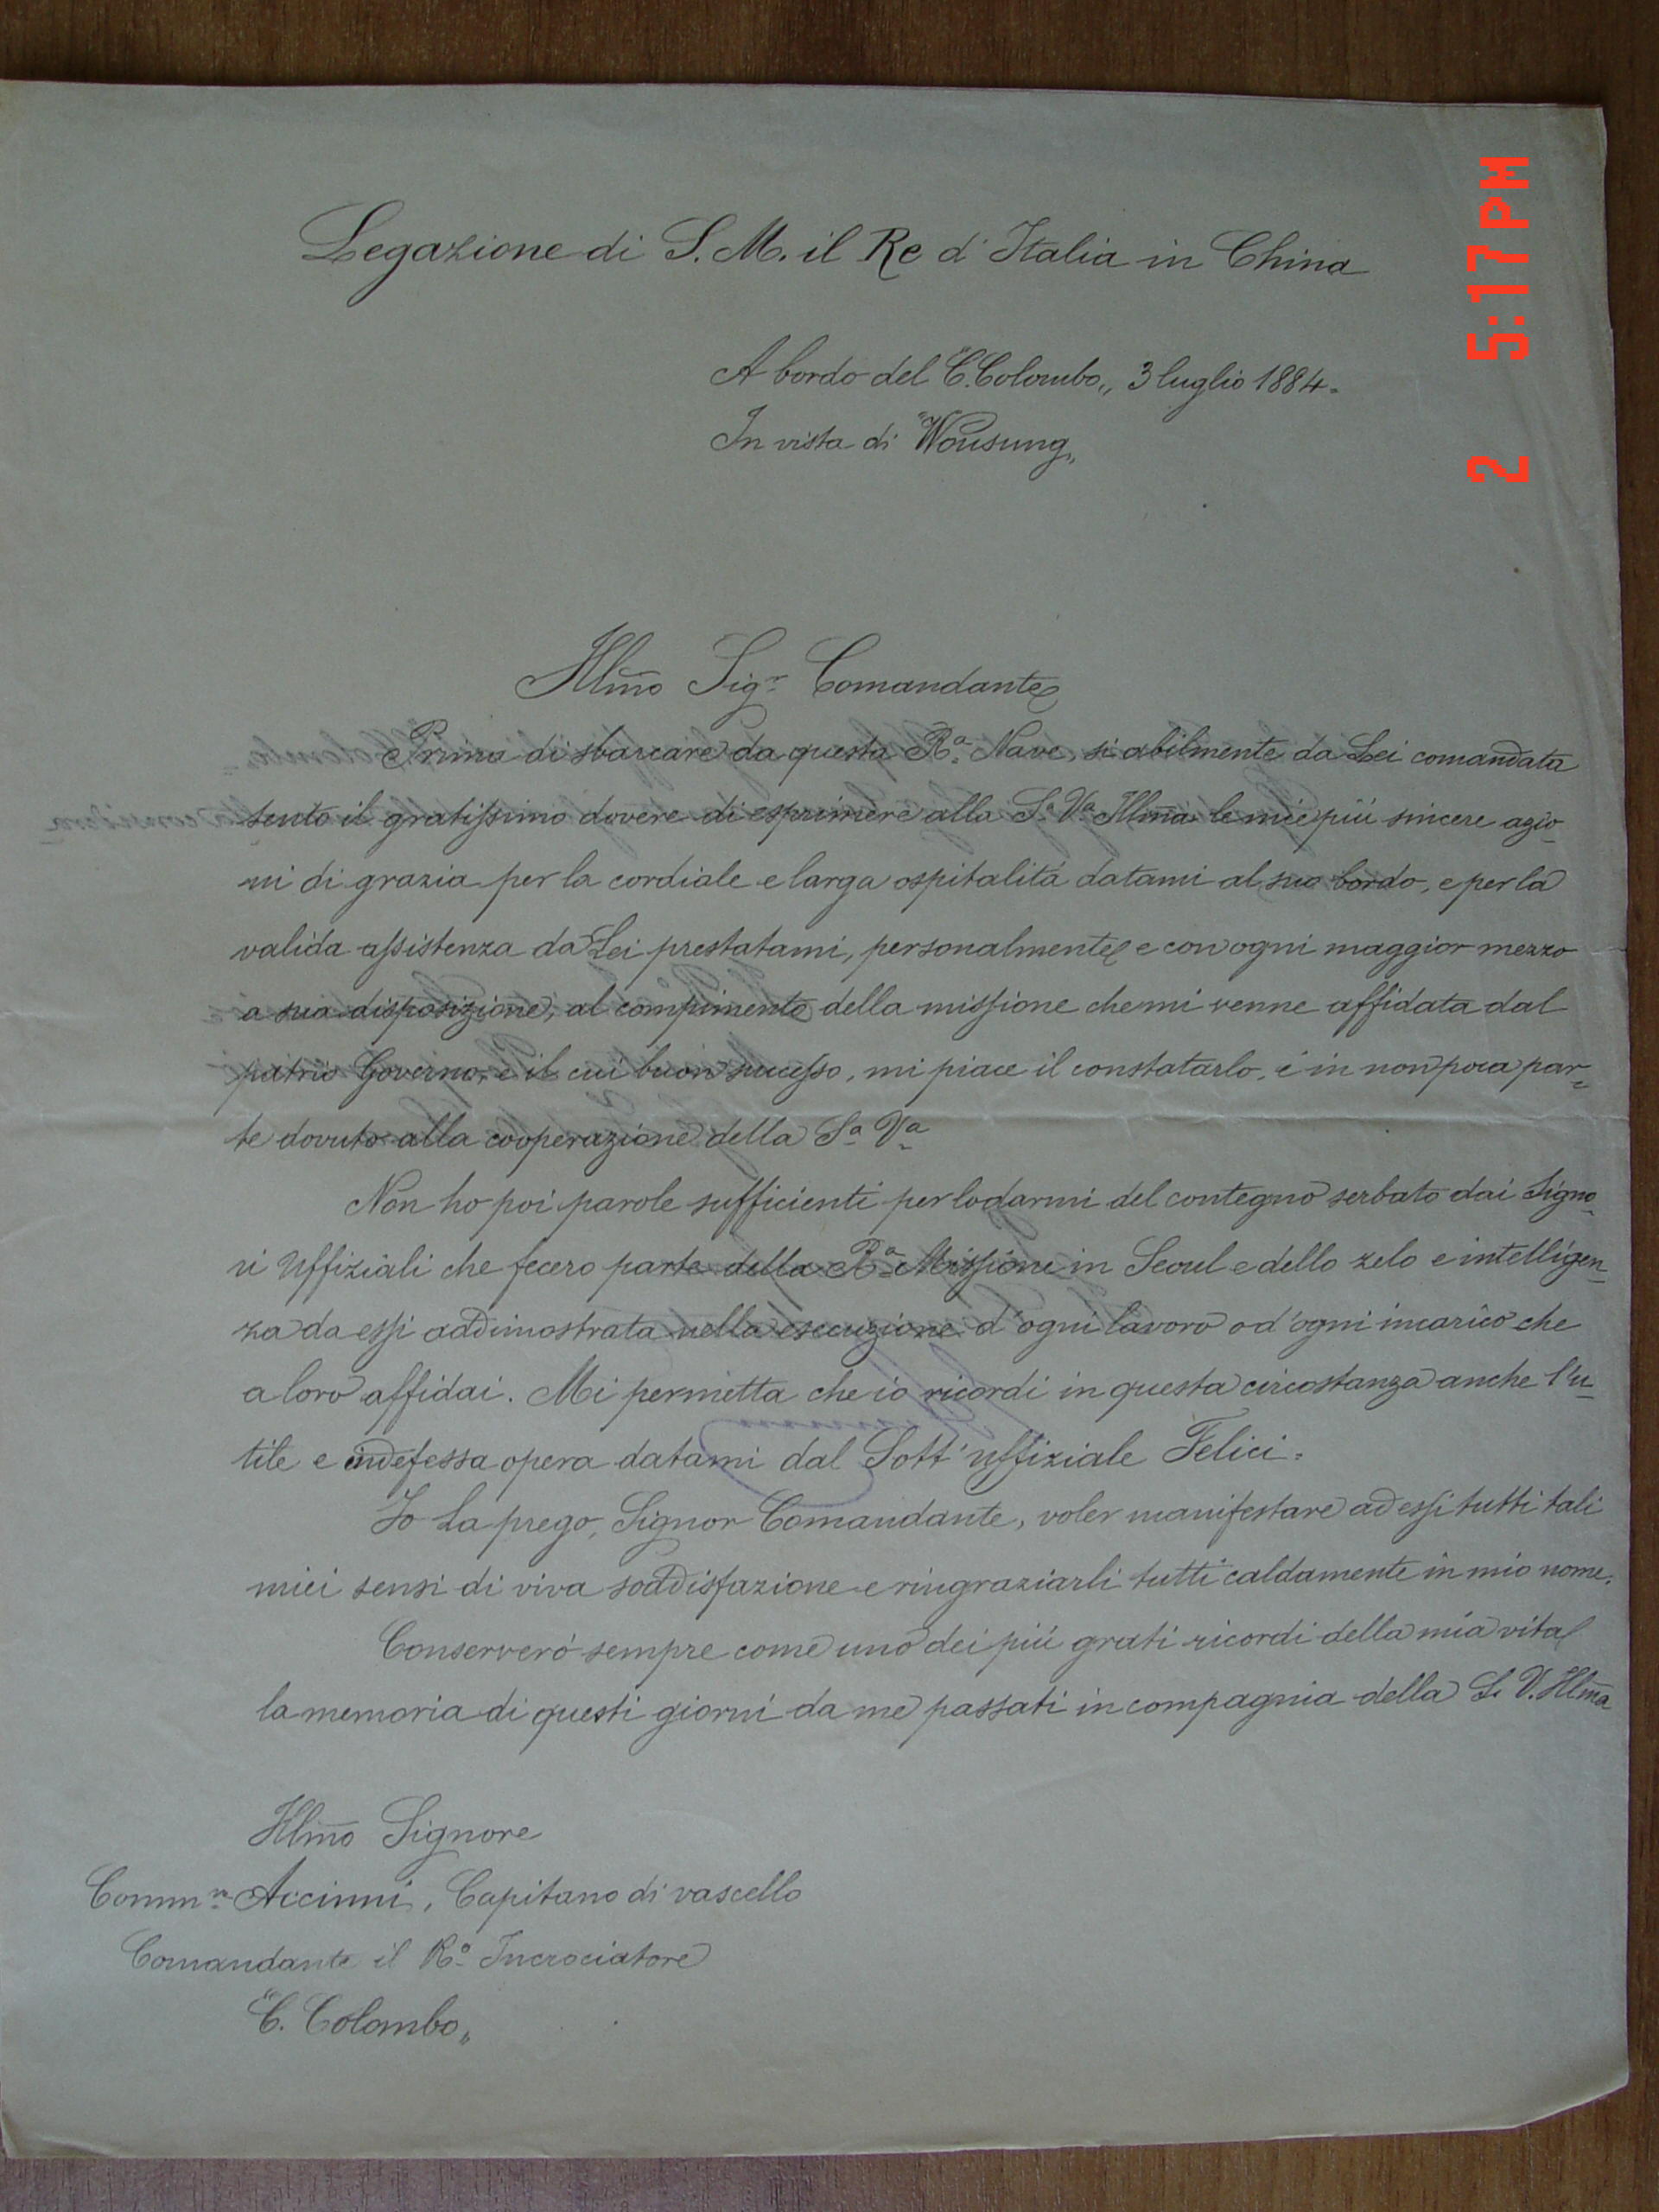 Legazione di S. M. il Re d'Italia in China
A bordo del "C. Colombo„ 3 luglio 1884.
In vista di "Wousung„
Illm̃o Sigr Comandante
Prima di sbarcare da questa Ra Nave, sì abilmente da Lei comandata
sento il gratissimo dovere di esprimere alla Sa Va Illm̃a le mie più sincere azio-
ni di grazia per la cordiale e larga ospitalità datami al suo bordo, e per la
valida assistenza da Lei prestatami, personalmente e con ogni maggior mezzo
a sua disposizione, al compimento della missione che mi venne affidata dal
patrio Governo, e il cui buon sucesso, mi piace il constatarlo, è in non poca par-
te dovuto alla cooperazione della Sa Va
Non ho poi parole sufficienti per lodarmi del contegno serbato dai Signo-
ri Uffiziali che fecero parte della Ra Missione in Seoul e dello zelo e intelligen-
za da essi addimostrata nella esecuzione d'ogni lavoro o d'ogni incarico che
a loro affidai. Mi permetta che io ricordi in questa circostanza anche l'u-
tile e indefessa opera datami dal Sott'uffiziale Felici.
Io La prego, Signor Comandante, voler manifestare ad essi tutti tali
miei sensi di viva soddisfazione e ringraziarli tutti caldamente in mio nome.
Conserverò sempre come uno dei più grati ricordi della mia vita
la memoria di questi giorni da me passati in compagnia della S. V. Illm̃a
Illm̃o Signore
Commre Accinni, Capitano di vascello
Comandante il Ro Incrociatore
"C. Colombo„
2 5:17 PM